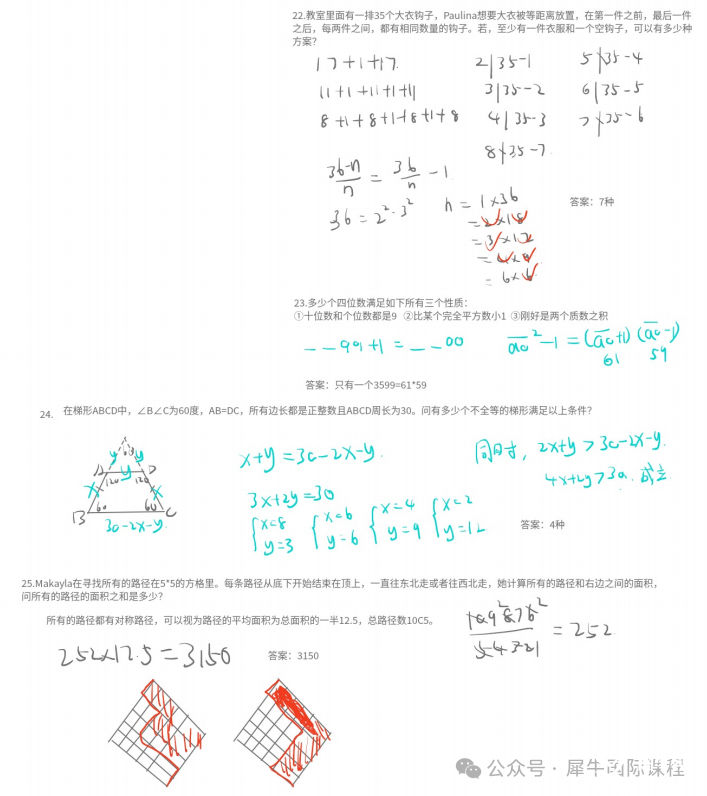 22.教室里面有一排35个大衣钩子，Paulina想要大衣被等距离放置，在第一件之前，最后一件
之后，每两件之间，都有相同数量的钩子。若，至少有一件衣服和一个空钩子，可以有多少种
方案？
17+1+17
11+1+11+1+11
8+1+8+1+8+1+8
2|35-1
3|35-2
4|35-3
8∤35-7
5∤35-4
6|35-5
7∤35-6
36-n/n = 36/n - 1
36=2²·3²
n=1×36
=2×18
=3×12
=4×9
=6×6
答案：7种
23.多少个四位数满足如下所有三个性质：
①十位数和个位数都是9 ②比某个完全平方数小1 ③刚好是两个质数之积
_ _99+1=_ _00
a0²-1=(a0+1)(a0-1)
61 59
答案：只有一个3599=61*59
24. 在梯形ABCD中，∠B∠C为60度，AB=DC，所有边长都是正整数且ABCD周长为30。问有多少个不全等的梯形满足以上条件？
60
y y
A y D
x 120 120 x
B 60 60 C
30-2x-y
x+y=30-2x-y.
3x+2y=30
x=8 y=3
x=6 y=6
x=4 y=9
x=2 y=12
同时，2x+y>30-2x-y.
4x+2y>30. 成立
答案：4种
25.Makayla在寻找所有的路径在5*5的方格里。每条路径从底下开始结束在顶上，一直往东北走或者往西北走，她计算所有的路径和右边之间的面积，
问所有的路径的面积之和是多少？
所有的路径都有对称路径，可以视为路径的平均面积为总面积的一半12.5，总路径数10C5。
252×12.5=3150
答案：3150
=252
公众号 · 犀牛国际课程